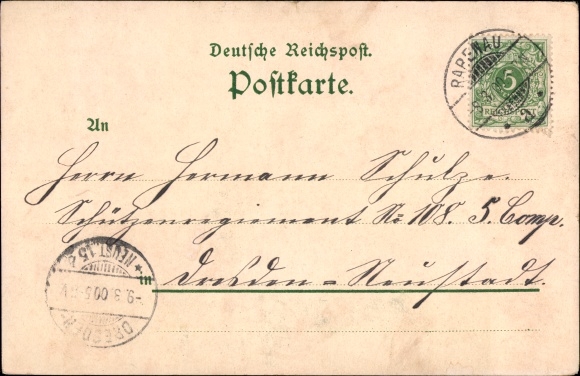 Deutsche Reichspost.
Postkarte.
RABENAU
5
An
Herrn Hermann Schulze.
Schützenregiement No: 108. 5. Comp.
in Dresden = Neustadt.
DRESDEN NEUST. 15
9.3.00.5